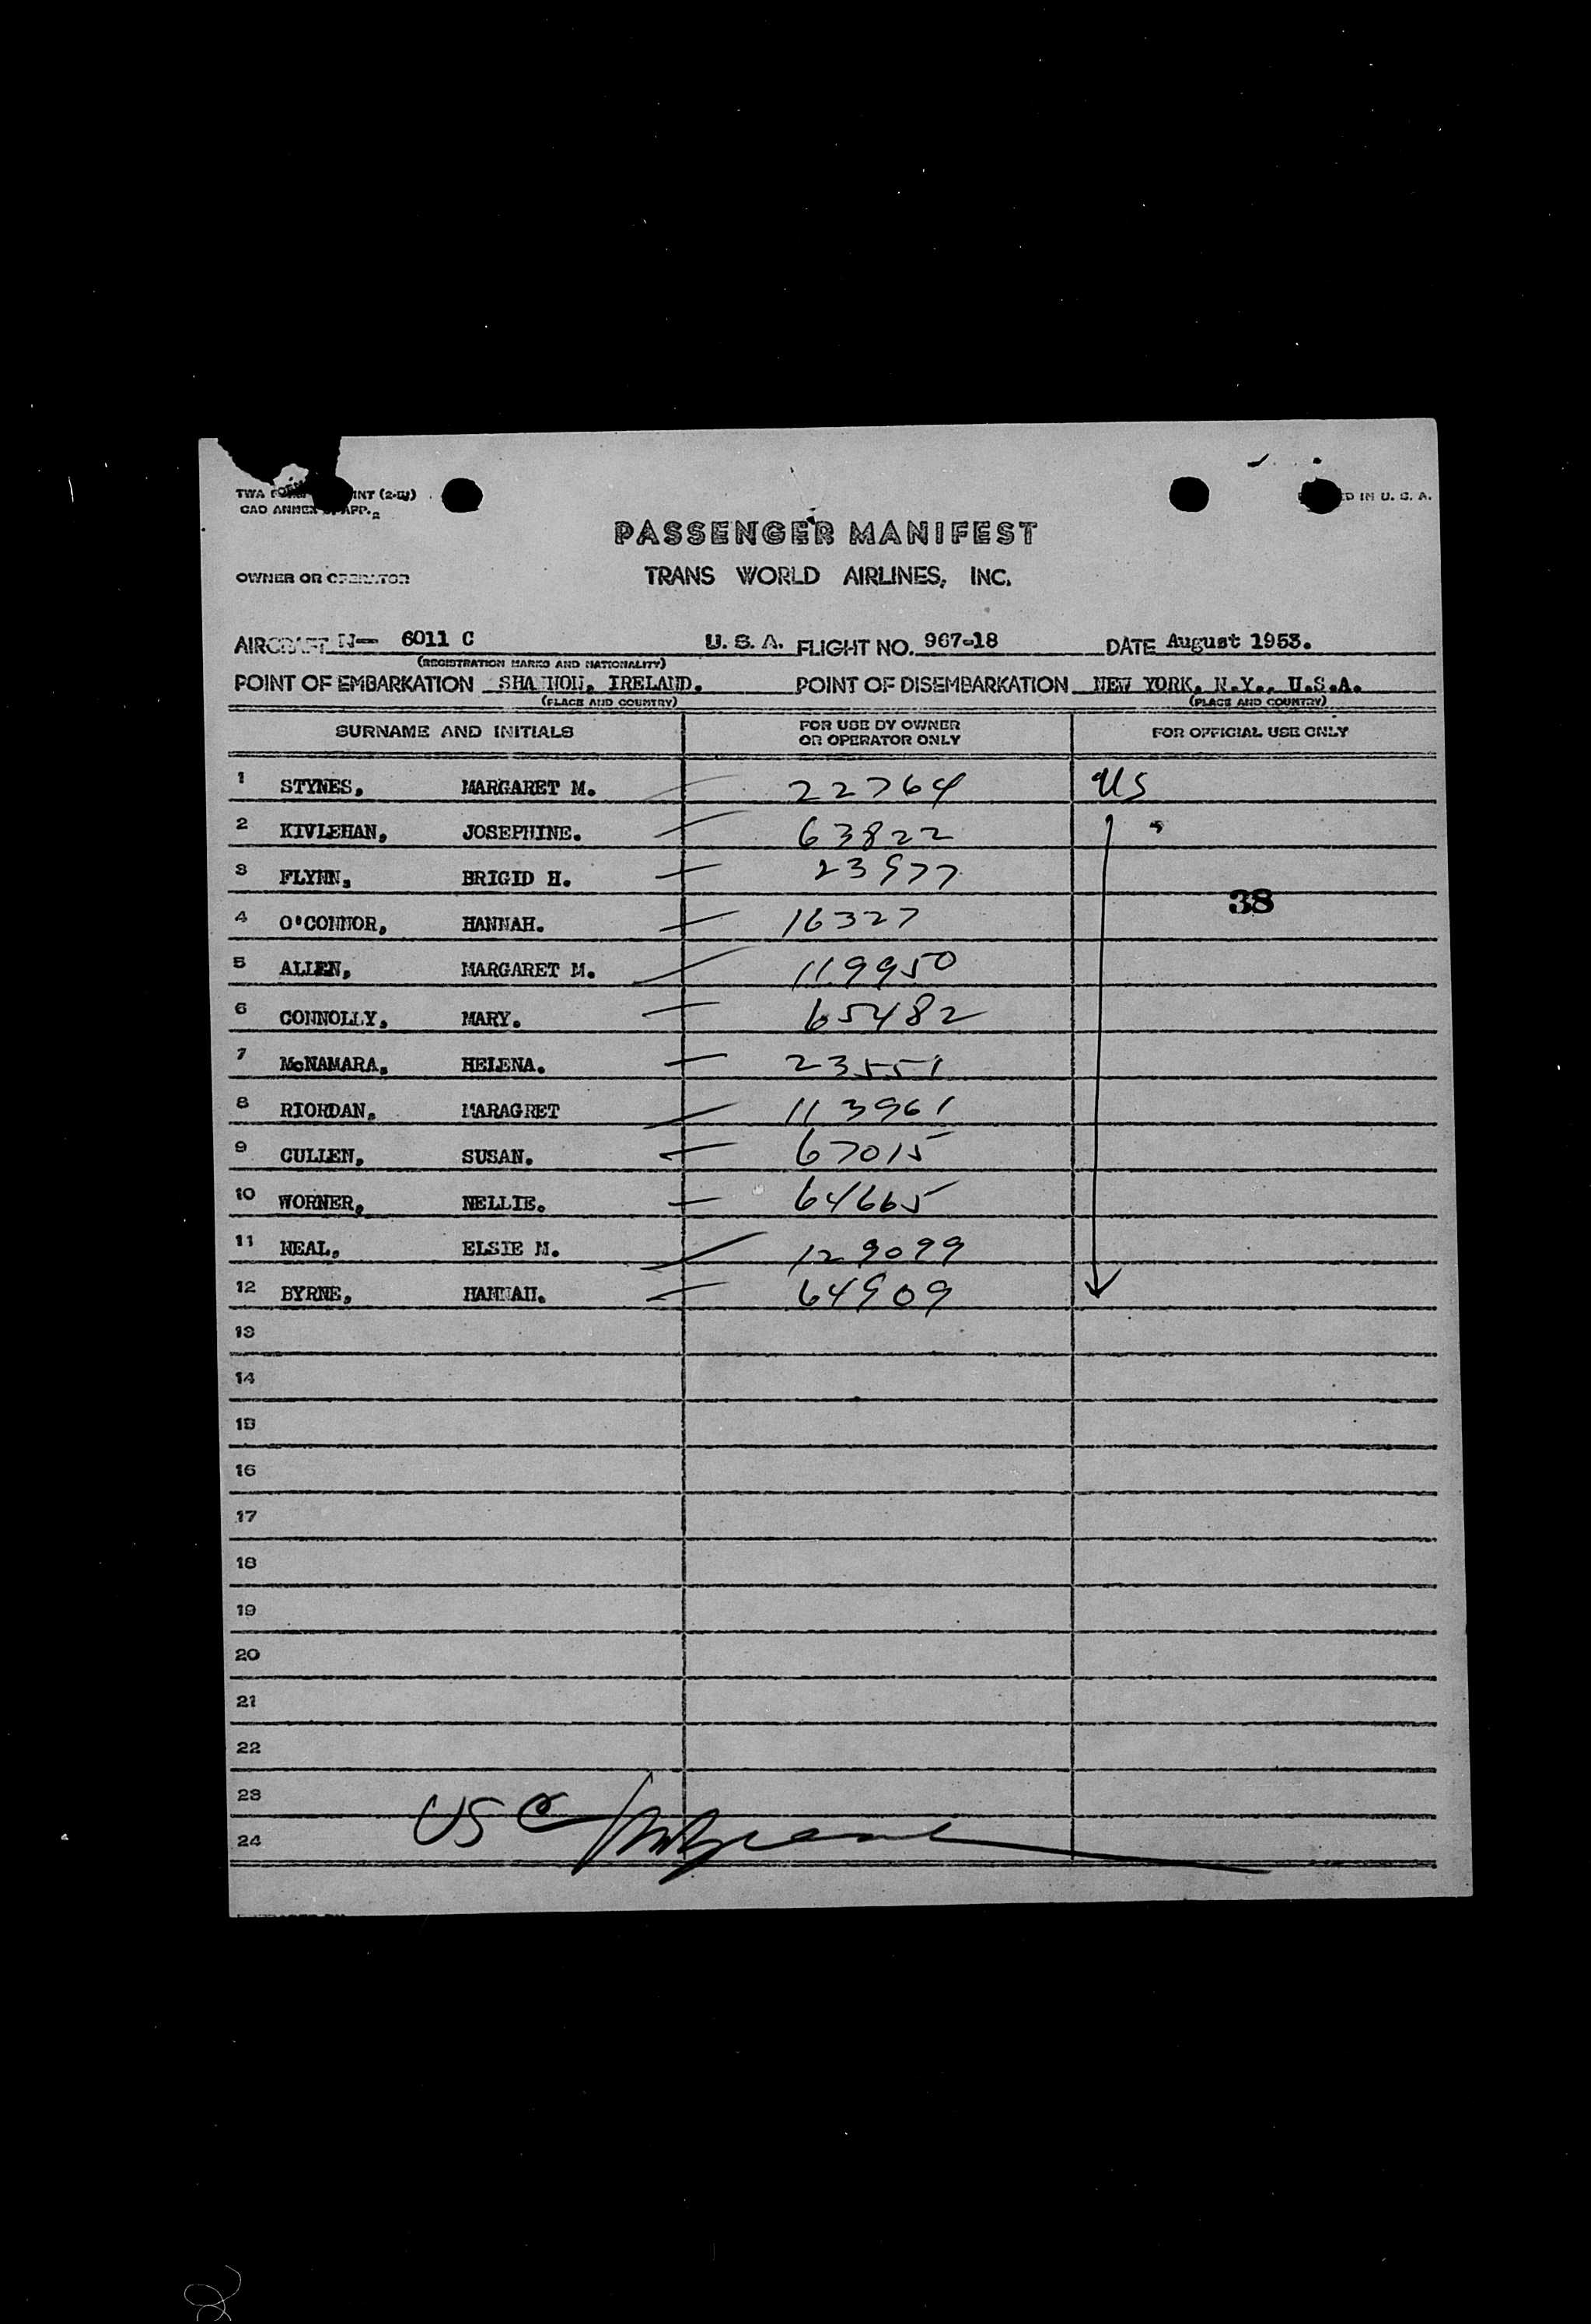 TWA FORM INT (2-51)
CAO ANNEX APP. 2
D IN U. S. A.
PASSENGER MANIFEST
OWNER OR OPERATOR TRANS WORLD AIRLINES, INC.
AIRCRAFT N- 6011 C U. S. A. FLIGHT NO. 967-18 DATE August 1953.
(REGISTRATION MARKS AND NATIONALITY)
POINT OF EMBARKATION SHANNON, IRELAND. POINT OF DISEMBARKATION NEW YORK, N.Y., U.S.A.
(PLACE AND COUNTRY) (PLACE AND COUNTRY)
SURNAME AND INITIALS FOR USE BY OWNER OR OPERATOR ONLY FOR OFFICIAL USE ONLY
1 STYNES, MARGARET M. 22764 US
2 KIVLEHAN, JOSEPHINE. 63822
3 FLYNN, BRIGID H. 23977
38
4 O'CONNOR, HANNAH. 16327
5 ALLEN, MARGARET M. 119950
6 CONNOLLY, MARY. 65482
7 McNAMARA, HELENA. 23551
8 RIORDAN, MARAGRET 113961
9 CULLEN, SUSAN. 67015
10 WORNER, NELLIE. 64665
11 NEAL, ELSIE M. 129099
12 BYRNE, HANNAH. 64909
13
14
15
16
17
18
19
20
21
22
23
24
USC